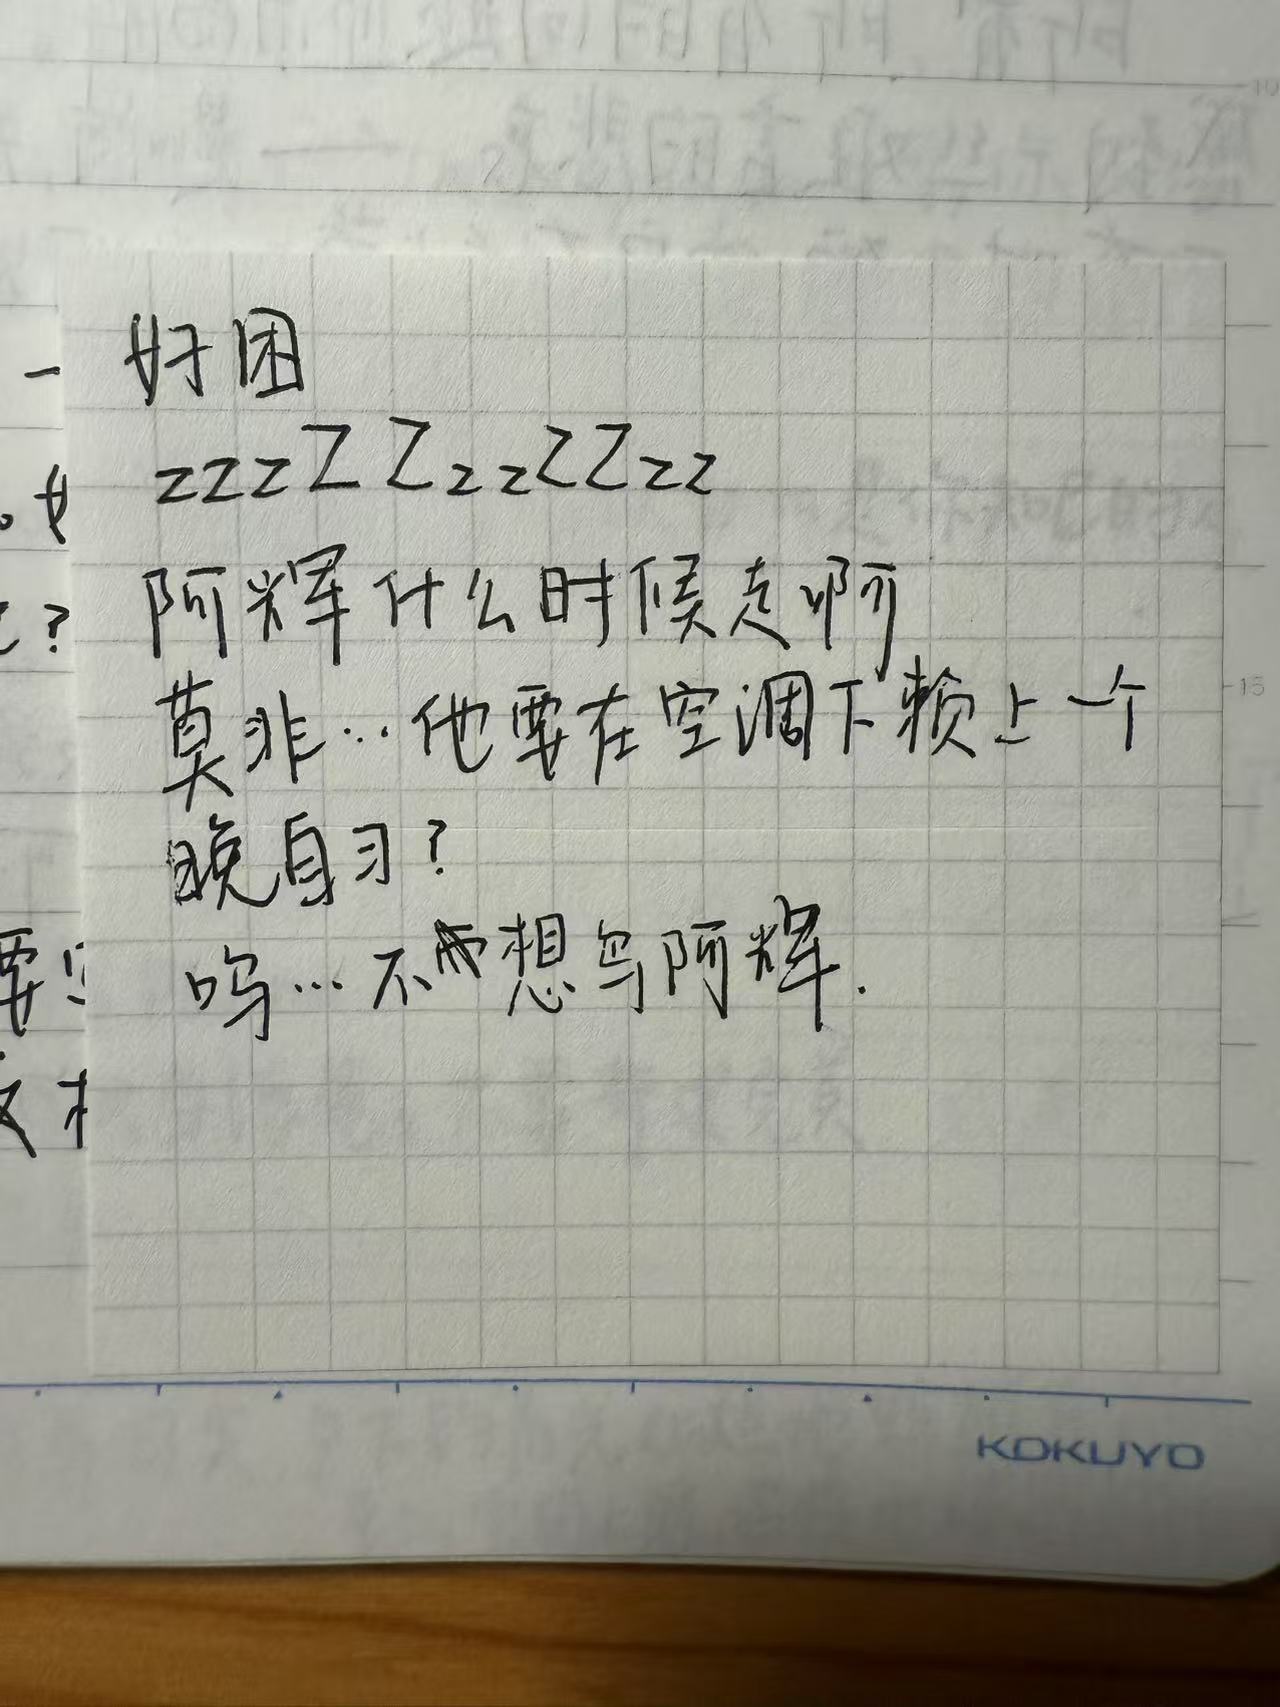 好困
zzzZZzzZZzz
阿辉什么时候走啊
莫非…他要在空调下赖上一个
晚自习？
呜…不想鸟阿辉.
15
KOKUYO